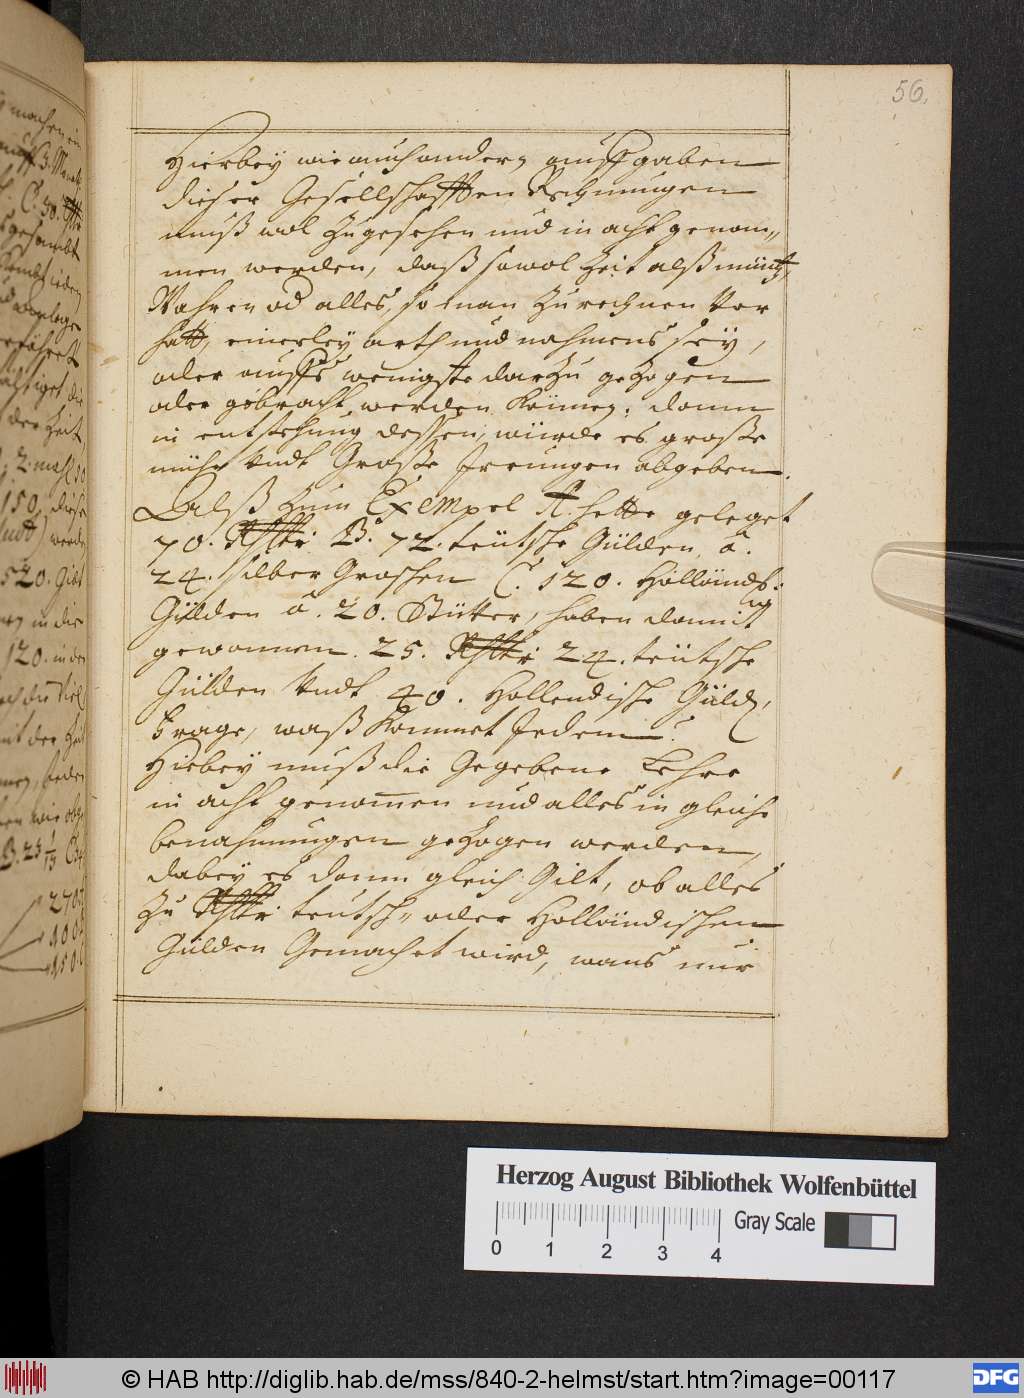 56.
Hierbey wie auch andern auffgaben
dieser Gesellschafften Rechnungen
muß wol zugesehen und in acht genom„
men werden, daß sowol Zeit alß müntz,
Wahren od alles, so man zu rechnen Vor
hatt, einerley arth und nahmens sey,
oder auffs wenigste darzu gezogen
oder gebracht werden können: dann
in entstehung dessen, würde es große
mühe Undt Große Irrungen abgeben.
Alß zum Exempel A. hette geleget
70. Rthlr: B. 72. teütsche Gülden â.
24. silber Groschen C. 120. Holländs:
Gülden â. 20. Stüver, haben damit
gewonnen. 25. Rthlr: 24. teütsche
Gülden Undt 40. Hollendische Güld,
frage, waß kommet Jedem?
Hiebey muß die Gegebene Lehre
in acht genom̄en und alles in gleiche
benahmungen gezogen werden,
dabey es dann gleich Gilt, ob alles
Zu Rthlr: teutsch„ oder Holländischen
Gülden Gemachet wird, wans nur
Herzog August Bibliothek Wolfenbüttel
0 1 2 3 4
Gray Scale
© HAB http://diglib.hab.de/mss/840-2-helmst/start.htm?image=00117
DFG